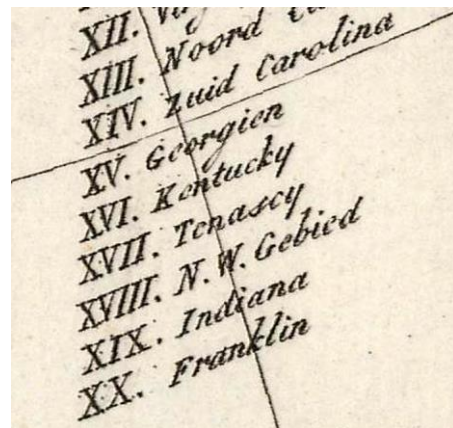 XII.
XIII. Noord
XIV. Zuid Carolina
XV. Georgien
XVI. Kentucky
XVII. Tenascy
XVIII. N.W. Gebied
XIX. Indiana
XX. Franklin